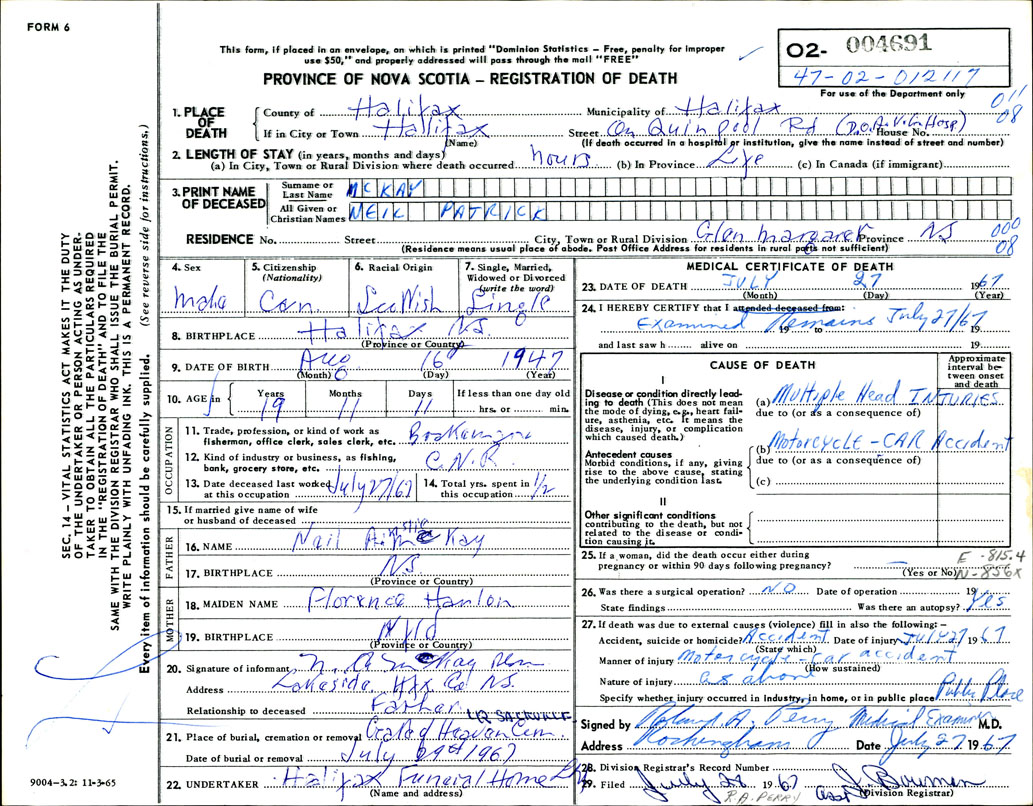 FORM 6
This form, if placed in an envelope, on which is printed "Dominion Statistics – Free, penalty for improper
use $50," and properly addressed will pass through the mail "FREE"
PROVINCE OF NOVA SCOTIA – REGISTRATION OF DEATH
02- 004691
47-02-012117
For use of the Department only
011
08
1. PLACE OF DEATH
County of Halifax Municipality of Halifax
If in City or Town Halifax Street On Quinpool Rd (D.O.A. V.G. Hosp) House No.
(Name) (If death occurred in a hospital or institution, give the name instead of street and number)
2. LENGTH OF STAY (in years, months and days)
(a) In City, Town or Rural Division where death occurred hours (b) In Province Life (c) In Canada (if immigrant)
3. PRINT NAME OF DECEASED
Surname or Last Name MCKAY
All Given or Christian Names NEIL PATRICK
RESIDENCE No. Street City, Town or Rural Division Glen Margaret Province NS
000
08
(Residence means usual place of abode. Post Office Address for residents in rural parts not sufficient)
4. Sex Male
5. Citizenship (Nationality) Can.
6. Racial Origin Scottish
7. Single, Married, Widowed or Divorced (write the word) Single
8. BIRTHPLACE Halifax NS.
(Province or Country)
9. DATE OF BIRTH Aug 16 1947
(Month) (Day) (Year)
10. AGE in Years 19 Months 11 Days 11 If less than one day old hrs. or min.
OCCUPATION
11. Trade, profession, or kind of work as fisherman, office clerk, sales clerk, etc.
12. Kind of industry or business, as fishing, bank, grocery store, etc. C.N.R.
13. Date deceased last worked at this occupation July 27/67 14. Total yrs. spent in this occupation 1/2
15. If married give name of wife or husband of deceased
FATHER
16. NAME Neil Kay
17. BIRTHPLACE NS.
(Province or Country)
MOTHER
18. MAIDEN NAME Florence Hanlon
19. BIRTHPLACE Nfld
(Province or Country)
20. Signature of informant
Address Lakeside Hfx Co NS.
Relationship to deceased Father
LR SACKVILLE
21. Place of burial, cremation or removal Gate of Heaven Cem.
Date of burial or removal July 29st 1967
22. UNDERTAKER Halifax Funeral Home
(Name and address)
MEDICAL CERTIFICATE OF DEATH
23. DATE OF DEATH JULY 27 1967
(Month) (Day) (Year)
24. I HEREBY CERTIFY that I attended deceased from:
Examined Remains July 27/67
19 to 19
and last saw h alive on 19
CAUSE OF DEATH
Approximate interval between onset and death
I
Disease or condition directly leading to death (This does not mean the mode of dying, e.g., heart failure, etc. It means the disease, injury, or complication which caused death.)
(a) Multiple Head INJURIES
due to (or as a consequence of)
Antecedent causes
Morbid conditions, if any, giving rise to the above cause, stating the underlying condition last.
(b) Motorcycle - CAR Accident
due to (or as a consequence of)
(c)
II
Other significant conditions contributing to the death, but not related to the disease or condition causing it.
25. If a woman, did the death occur either during pregnancy or within 90 days following pregnancy?
(Yes or No)
E-815.4
N-856X
26. Was there a surgical operation? NO Date of operation 19
State findings Was there an autopsy? Yes
27. If death was due to external causes (violence) fill in also the following: –
Accident, suicide or homicide? Accident Date of injury JULY 27 1967
(State which)
Manner of injury Motorcycle - Car accident
(How sustained)
Nature of injury as above
Specify whether injury occurred in industry, in home, or in public place Public Place
Signed by Roland A. Perry Medical Examiner M.D.
Address Rockingham Date July 27 1967
28. Division Registrar's Record Number
29. Filed July 28 1967
R.A. PERRY
(Division Registrar)
9004–3.2: 11-3-65
SEC. 14 – VITAL STATISTICS ACT MAKES IT THE DUTY
OF THE UNDERTAKER OR PERSON ACTING AS UNDER-
TAKER TO OBTAIN ALL THE PARTICULARS REQUIRED
IN THE "REGISTRATION OF DEATH" AND TO FILE THE
SAME WITH THE DIVISION REGISTRAR WHO SHALL ISSUE THE BURIAL PERMIT.
WRITE PLAINLY WITH UNFADING INK. THIS IS A PERMANENT RECORD.
Every item of information should be carefully supplied. (See reverse side for instructions.)